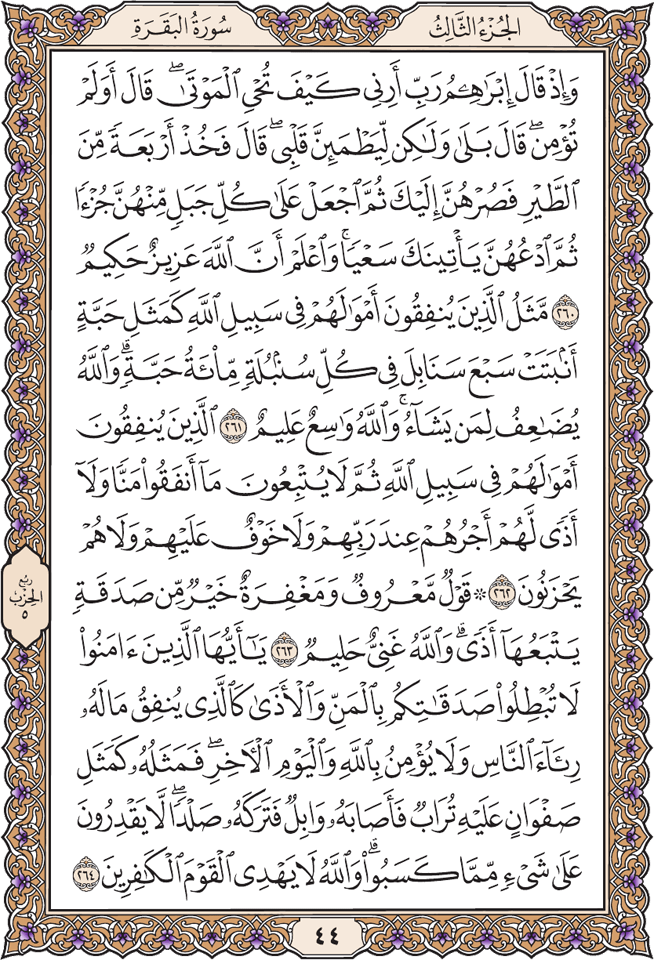 الجُزْءُ الثَّالِثُ
سُورَةُ البَقَرَةِ
وَإِذْ قَالَ إِبْرَٰهِـۧمُ رَبِّ أَرِنِى كَيْفَ تُحْىِ ٱلْمَوْتَىٰ ۖ قَالَ أَوَلَمْ
تُؤْمِن ۖ قَالَ بَلَىٰ وَلَٰكِن لِّيَطْمَئِنَّ قَلْبِى ۖ قَالَ فَخُذْ أَرْبَعَةً مِّنَ
ٱلطَّيْرِ فَصُرْهُنَّ إِلَيْكَ ثُمَّ ٱجْعَلْ عَلَىٰ كُلِّ جَبَلٍ مِّنْهُنَّ جُزْءًا
ثُمَّ ٱدْعُهُنَّ يَأْتِينَكَ سَعْيًا ۚ وَٱعْلَمْ أَنَّ ٱللَّهَ عَزِيزٌ حَكِيمٌ
٢٦٠ مَّثَلُ ٱلَّذِينَ يُنفِقُونَ أَمْوَٰلَهُمْ فِى سَبِيلِ ٱللَّهِ كَمَثَلِ حَبَّةٍ
أَنۢبَتَتْ سَبْعَ سَنَابِلَ فِى كُلِّ سُنۢبُلَةٍ مِّا۟ئَةُ حَبَّةٍ ۗ وَٱللَّهُ
يُضَٰعِفُ لِمَن يَشَآءُ ۚ وَٱللَّهُ وَٰسِعٌ عَلِيمٌ ٢٦١ ٱلَّذِينَ يُنفِقُونَ
أَمْوَٰلَهُمْ فِى سَبِيلِ ٱللَّهِ ثُمَّ لَا يُتْبِعُونَ مَآ أَنفَقُوا۟ مَنًّا وَلَآ
أَذًى لَّهُمْ أَجْرُهُمْ عِندَ رَبِّهِمْ وَلَا خَوْفٌ عَلَيْهِمْ وَلَا هُمْ
يَحْزَنُونَ ٢٦٢ ۞ قَوْلٌ مَّعْرُوفٌ وَمَغْفِرَةٌ خَيْرٌ مِّن صَدَقَةٍ
يَتْبَعُهَآ أَذًى ۗ وَٱللَّهُ غَنِىٌّ حَلِيمٌ ٢٦٣ يَٰٓأَيُّهَا ٱلَّذِينَ ءَامَنُوا۟
لَا تُبْطِلُوا۟ صَدَقَٰتِكُم بِٱلْمَنِّ وَٱلْأَذَىٰ كَٱلَّذِى يُنفِقُ مَالَهُۥ
رِئَآءَ ٱلنَّاسِ وَلَا يُؤْمِنُ بِٱللَّهِ وَٱلْيَوْمِ ٱلْءَاخِرِ ۖ فَمَثَلُهُۥ كَمَثَلِ
صَفْوَانٍ عَلَيْهِ تُرَابٌ فَأَصَابَهُۥ وَابِلٌ فَتَرَكَهُۥ صَلْدًا ۖ لَّا يَقْدِرُونَ
عَلَىٰ شَىْءٍ مِّمَّا كَسَبُوا۟ ۗ وَٱللَّهُ لَا يَهْدِى ٱلْقَوْمَ ٱلْكَٰفِرِينَ ٢٦٤
ربع
الحِزْب
٥
٤٤